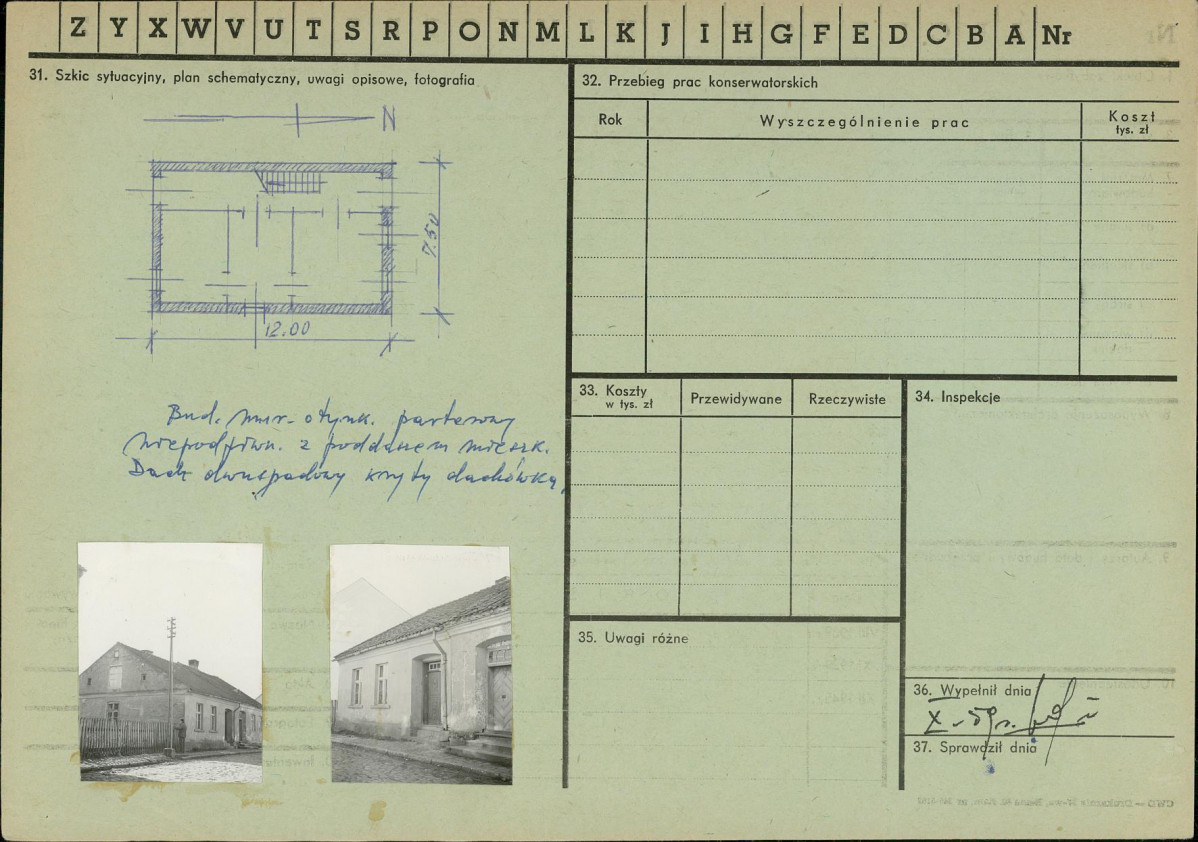 Z Y X W V U T S R P O N M L K J I H G F E D C B A Nr
31. Szkic sytuacyjny, plan schematyczny, uwagi opisowe, fotografia
N
7.50
12.00
Bud. mur. otynk. parterowy
niepodpiwn. z poddaszem mieszk.
Dach dwuspadowy kryty dachówką.
32. Przebieg prac konserwatorskich
Rok Wyszczególnienie prac Koszt
tys. zł
33. Koszty
w tys. zł
Przewidywane Rzeczywiste
34. Inspekcje
35. Uwagi różne
36. Wypełnił dnia
X-59 r.
37. Sprawdził dnia